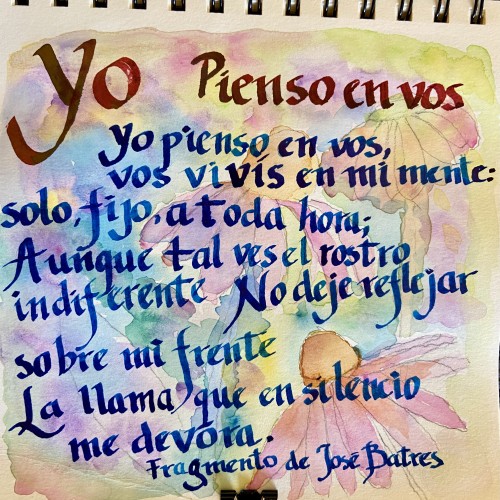 Yo Pienso en vos
Yo pienso en vos,
vos vivís en mi mente:
solo, fijo, a toda hora;
Aunque tal ves el rostro
indiferente No deje reflejar
sobre mi frente
La llama, que en silencio
me devora.
Fragmento de José Batres